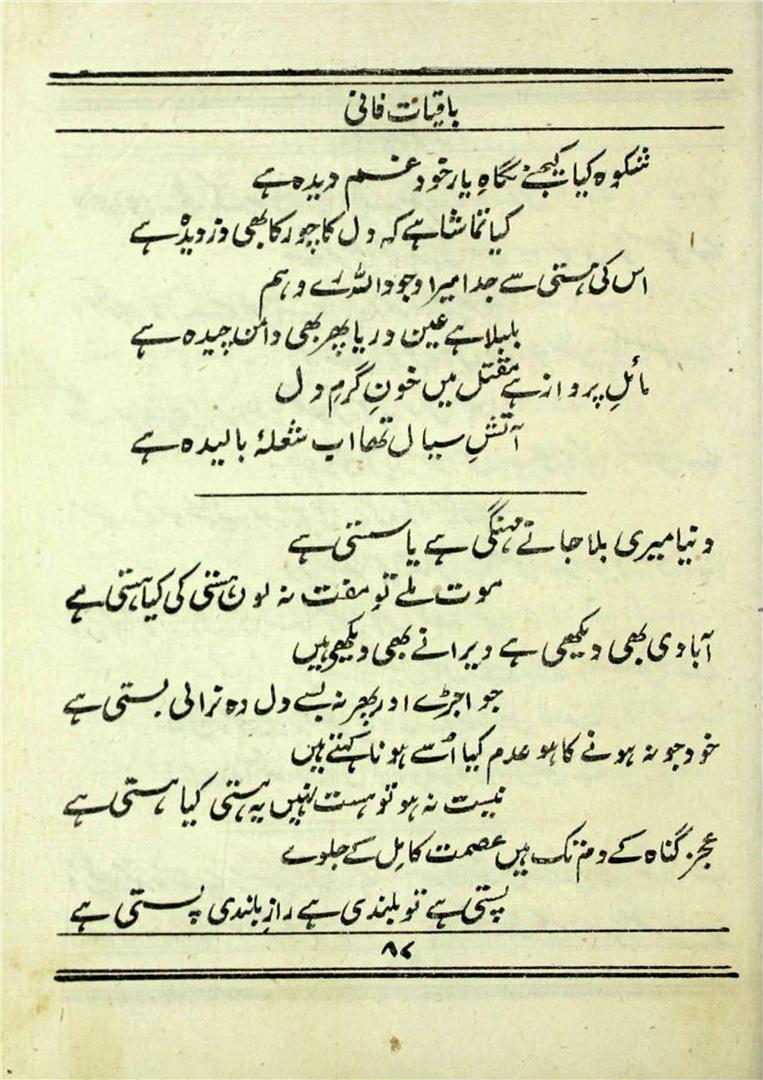 باقیات فانی
شکوہ کیا کیجئے نگاہِ یار خود غم دیدہ ہے
کیا تماشا ہے کہ دل کا چور کا بھی دزدیدہ ہے
اس کی ہستی سے جدا میرا وجود اللہ رے وہم
بلبلا ہے عین دریا پھر بھی دامن چیدہ ہے
مائلِ پرواز ہے مقتل میں خونِ گرمِ دل
آتشِ سیال تھا اب شعلۂ بالیدہ ہے
دنیا میری بلا جانے مہنگی ہے یا سستی ہے
موت ملے تو مفت نہ لوں ہستی کی کیا ہستی ہے
آبادی بھی دیکھی ہے ویرانے بھی دیکھے ہیں
جو اجڑے اور پھر نہ بسے دل وہ نرالی بستی ہے
خود جو نہ ہونے کا ہو عدم کیا اُسے ہونا کہتے ہیں
نیست نہ ہو تو ہست نہیں یہ ہستی کیا ہستی ہے
عجز گناہ کے دم تک ہیں عصمت کامل کے جلوے
پستی ہے تو بلندی ہے رازِ بلندی پستی ہے